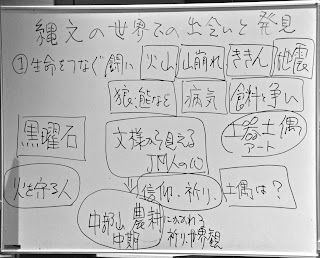 縄文の世界での出会いと発見
①生命をつなぐ闘い 火山 山崩れ ききん 地震
狼、熊など 病気 食料と争い
黒曜石 文様から見える 土器土偶
JM人の心 アート
火を守る人 信仰、祈り、土偶は？
中部山 農耕にかかわる
中期 祈り、世界観